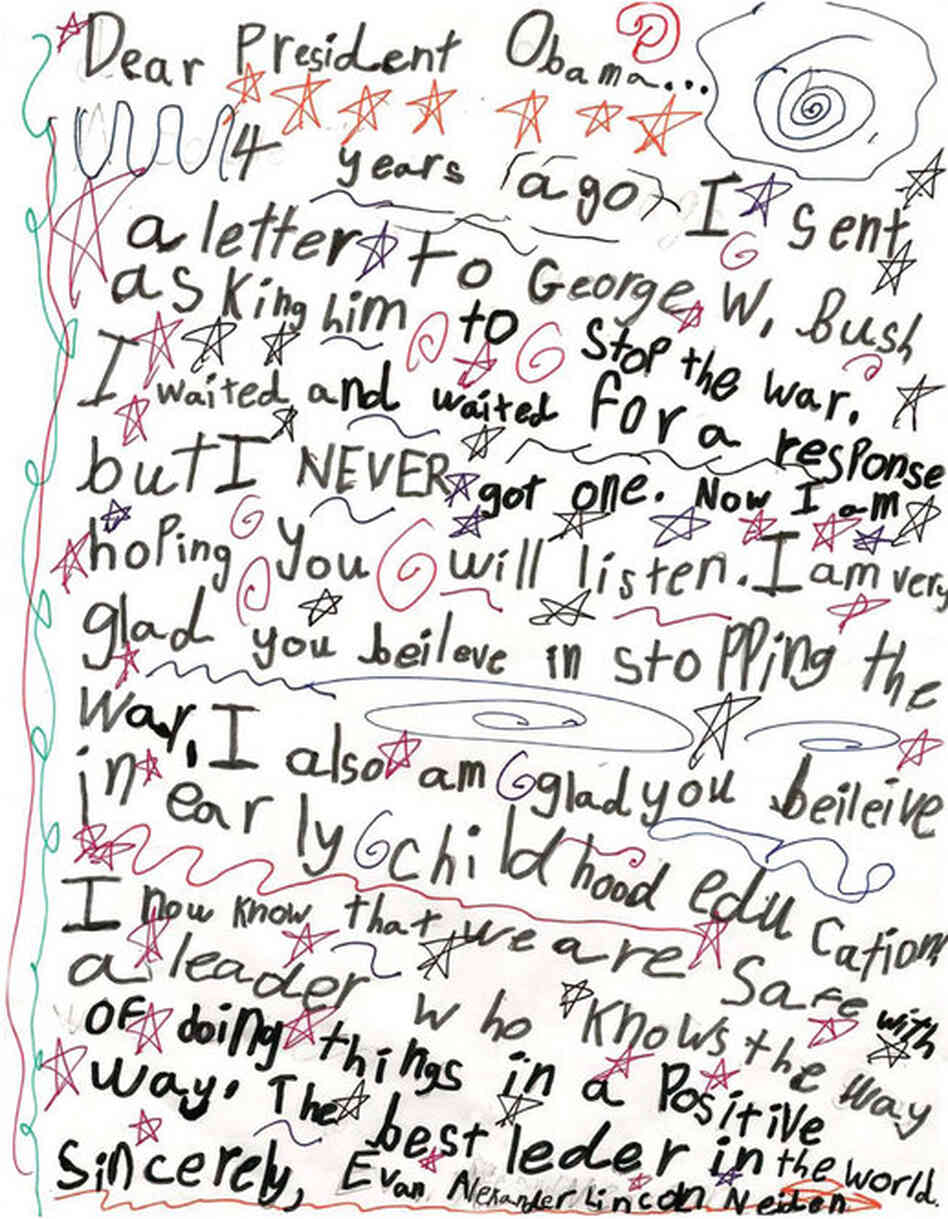 Dear President Obama...
4 years (ago) I sent
a letter to George W. Bush
asking him to stop the war.
I waited and waited for a response
but I NEVER got one. Now I am
hoping you will listen. I am very
glad you beileve in stopping the
war, I also am glad you beileive
in early childhood education
I now know that we are safe with
a leader who knows the way
of doing things in a Positive
way. The best leder in the world.
Sincerely, Evan Alexander Lincoln Neiden